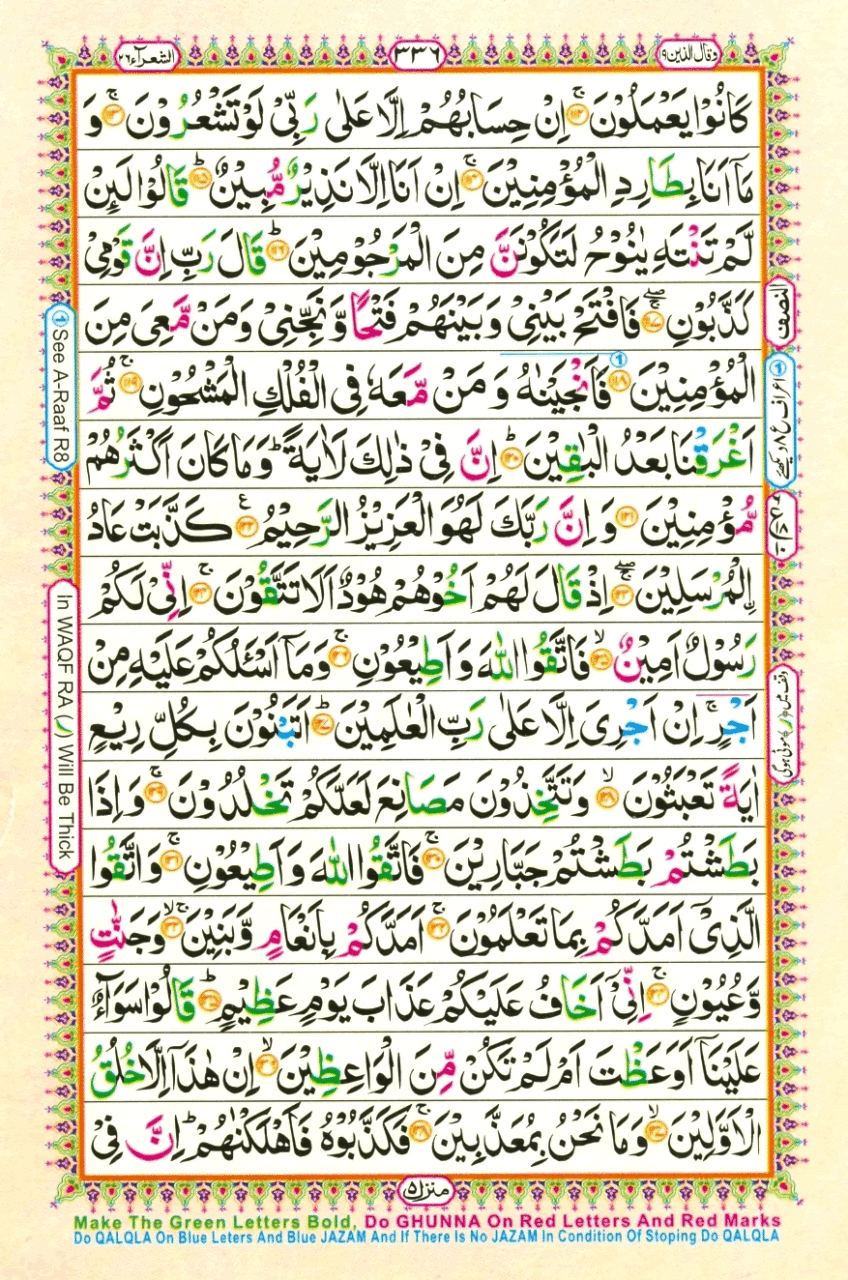 وقال الذين ۱۹
۳۳۶
الشعرآء ۲۶
كَانُوْا يَعْمَلُوْنَ ۝۱۱۲ۚ اِنْ حِسَابُهُمْ اِلَّا عَلٰى رَبِّىْ لَوْ تَشْعُرُوْنَ ۝۱۱۳ۚ وَ
مَاۤ اَنَا بِطَارِدِ الْمُؤْمِنِيْنَ ۝۱۱۴ۚ اِنْ اَنَا اِلَّا نَذِيْرٌ مُّبِيْنٌ ۝۱۱۵ؕ قَالُوْا لَىِٕنْ
لَّمْ تَنْتَهِ يٰنُوْحُ لَتَكُوْنَنَّ مِنَ الْمَرْجُوْمِيْنَ ۝۱۱۶ؕ قَالَ رَبِّ اِنَّ قَوْمِىْ
كَذَّبُوْنِ ۝۱۱۷ۚۖ فَافْتَحْ بَيْنِىْ وَبَيْنَهُمْ فَتْحًا وَّنَجِّنِىْ وَمَنْ مَّعِىَ مِنَ
الْمُؤْمِنِيْنَ ۝۱۱۸ فَاَنْجَيْنٰهُ وَ مَنْ مَّعَهٗ فِى الْفُلْكِ الْمَشْحُوْنِ ۝۱۱۹ۚ ثُمَّ
اَغْرَقْنَا بَعْدُ الْبٰقِيْنَ ۝۱۲۰ؕ اِنَّ فِىْ ذٰلِكَ لَاٰيَةً ؕ وَمَا كَانَ اَكْثَرُهُمْ
مُّؤْمِنِيْنَ ۝۱۲۱ وَ اِنَّ رَبَّكَ لَهُوَ الْعَزِيْزُ الرَّحِيْمُ ۝۱۲۲ ع كَذَّبَتْ عَادُ
اۨلْمُرْسَلِيْنَ ۝۱۲۳ۚۖ اِذْ قَالَ لَهُمْ اَخُوْهُمْ هُوْدٌ اَلَا تَتَّقُوْنَ ۝۱۲۴ۚ اِنِّىْ لَكُمْ
رَسُوْلٌ اَمِيْنٌ ۝۱۲۵ۙ فَاتَّقُوا اللّٰهَ وَ اَطِيْعُوْنِ ۝۱۲۶ۚ وَمَاۤ اَسْـَٔلُكُمْ عَلَيْهِ مِنْ
اَجْرٍ ۚ اِنْ اَجْرِىَ اِلَّا عَلٰى رَبِّ الْعٰلَمِيْنَ ۝۱۲۷ؕ اَتَبْنُوْنَ بِكُلِّ رِيْعٍ
اٰيَةً تَعْبَثُوْنَ ۝۱۲۸ۙ وَتَتَّخِذُوْنَ مَصَانِعَ لَعَلَّكُمْ تَخْلُدُوْنَ ۝۱۲۹ۚ وَ اِذَا
بَطَشْتُمْ بَطَشْتُمْ جَبَّارِيْنَ ۝۱۳۰ۚ فَاتَّقُوا اللّٰهَ وَ اَطِيْعُوْنِ ۝۱۳۱ۚ وَ اتَّقُوا
الَّذِىْۤ اَمَدَّكُمْ بِمَا تَعْلَمُوْنَ ۝۱۳۲ۚ اَمَدَّكُمْ بِاَنْعَامٍ وَّبَنِيْنَ ۝۱۳۳ۚۙ وَجَنّٰتٍ
وَّعُيُوْنٍ ۝۱۳۴ۚ اِنِّىْۤ اَخَافُ عَلَيْكُمْ عَذَابَ يَوْمٍ عَظِيْمٍ ۝۱۳۵ؕ قَالُوْا سَوَآءٌ
عَلَيْنَاۤ اَوَعَظْتَ اَمْ لَمْ تَكُنْ مِّنَ الْوَاعِظِيْنَ ۝۱۳۶ۙ اِنْ هٰذَاۤ اِلَّا خُلُقُ
الْاَوَّلِيْنَ ۝۱۳۷ۙ وَمَا نَحْنُ بِمُعَذَّبِيْنَ ۝۱۳۸ۚ فَكَذَّبُوْهُ فَاَهْلَكْنٰهُمْ ؕ اِنَّ فِىْ
النصف
① اعراف ع ۸ دیکھئے
وقف میں (ر) موٹی ہوگی
① See A-Raaf R8
In WAQF RA (ر) Will Be Thick
منزل ۵
Make The Green Letters Bold, Do GHUNNA On Red Letters And Red Marks
Do QALQLA On Blue Leters And Blue JAZAM And If There Is No JAZAM In Condition Of Stoping Do QALQLA